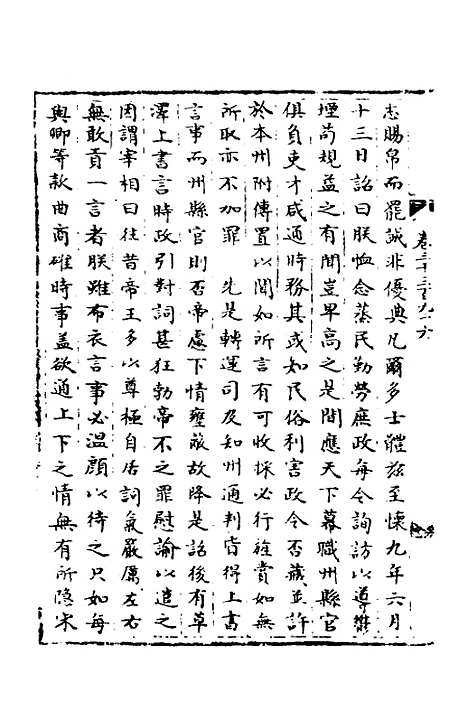 志賜帛而罷誠非優典凡爾多士體茲至懷九年六月
十三日詔曰朕恤念蒸民勤勞庶政每令詢訪以導
堙苟規益之有聞豈卑高之是間應天下幕職州縣官
俱負吏才咸通時務其或知民俗利害政令否臧並許
於本州附傳置以聞如所言有可收採必行旌賞如無
所取亦不加罪 先是轉運司及知州通判皆得上書
言事而州縣官則否帝慮下情壅蔽故降是詔後有草
澤上書言時政引對詞甚狂勃帝不之罪慰諭以遣之
因謂宰相曰往昔帝王多以尊極自居詞氣嚴厲左右
無敢貢一言者朕雖布衣言事必溫顏以待之只如每
與卿等款曲商確時事蓋欲通上下之情無有所隱宋